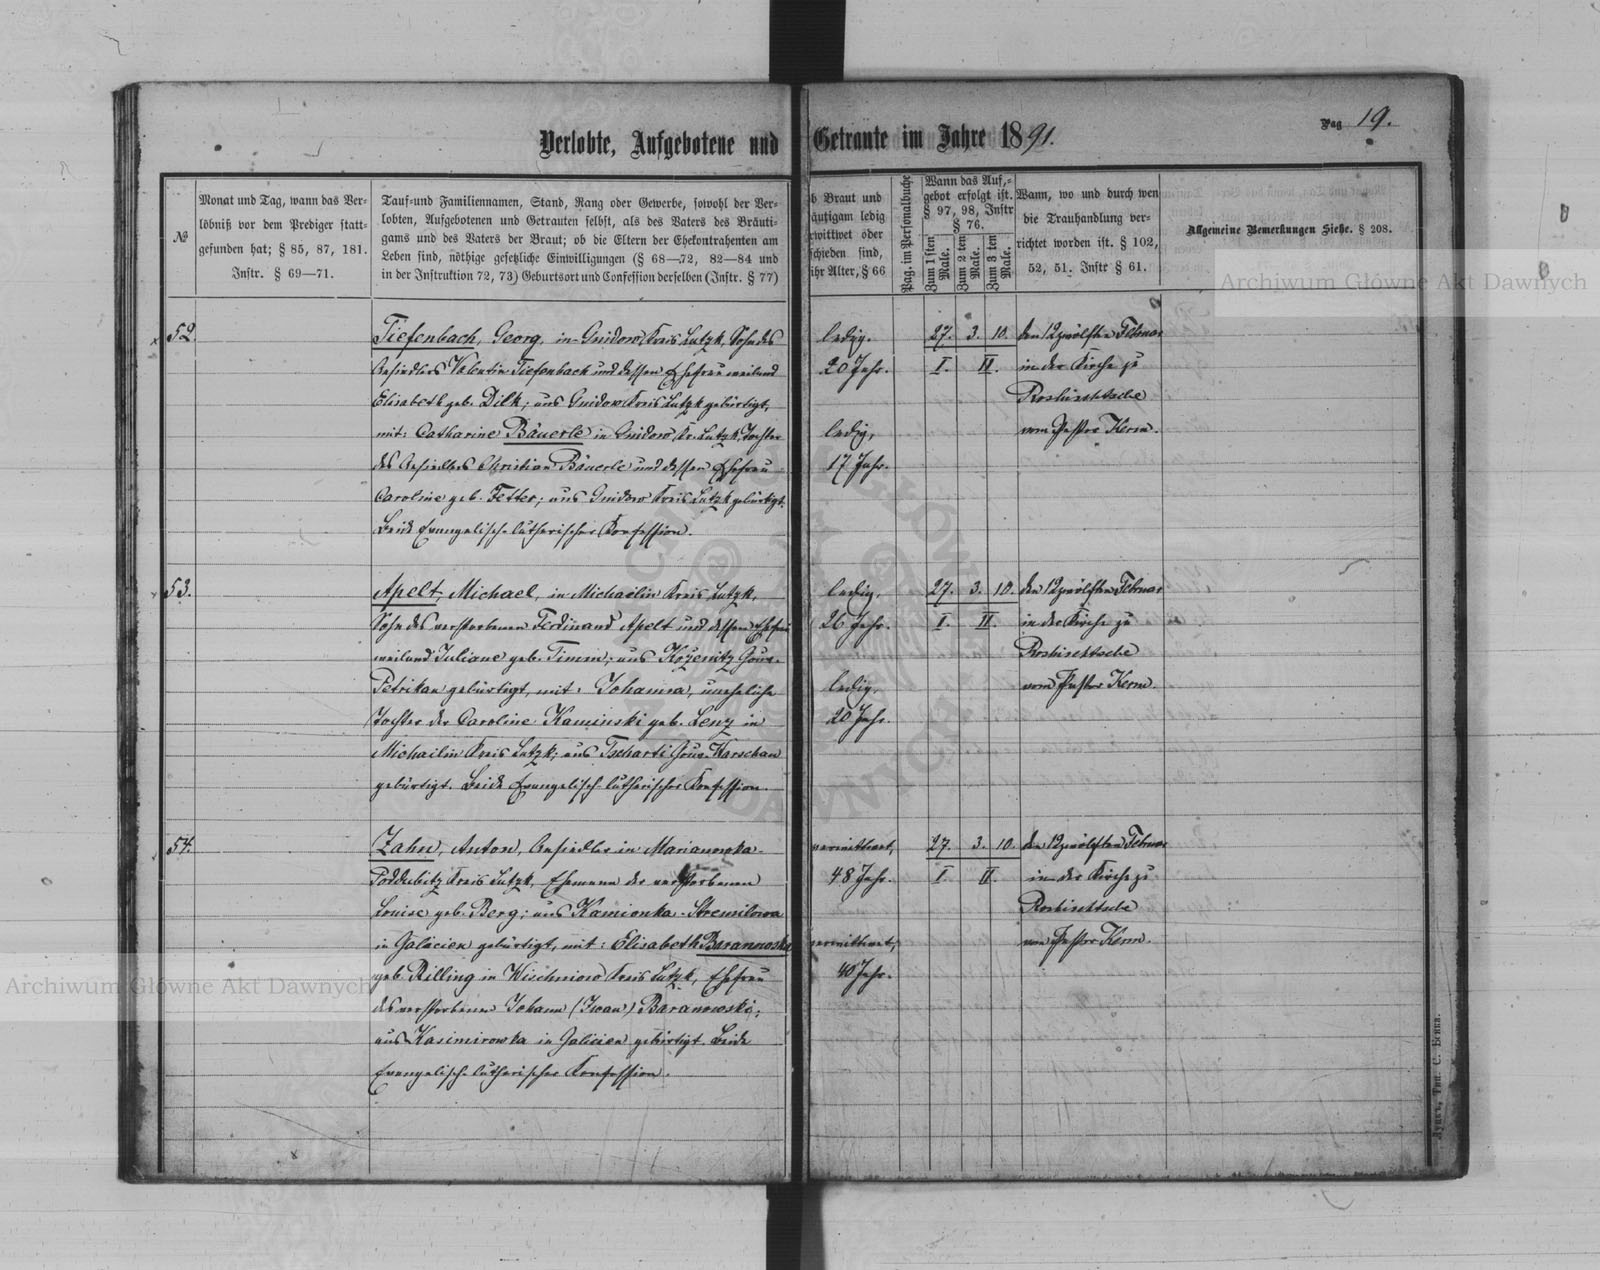 Verlobte, Aufgebotene und Getraute im Jahre 1891.
Pag 19.
№
Monat und Tag, wann das Ver-
löbniß vor dem Prediger statt-
gefunden hat; § 85, 87, 181.
Instr. § 69—71.
Tauf- und Familiennamen, Stand, Rang oder Gewerbe, sowohl der Ver-
lobten, Aufgebotenen und Getrauten selbst, als des Vaters des Bräuti-
gams und des Vaters der Braut; ob die Eltern der Ehekontrahenten am
Leben sind, nöthige gesetzliche Einwilligungen (§ 68—72, 82—84 und
in der Instruktion 72, 73) Geburtsort und Confession derselben (Instr. § 77)
b Braut und
äutigam ledig
rwittwet oder
schieden sind,
ihr Alter, § 66
Pag. im Personalbuche
Wann das Auf-
gebot erfolgt ist.
§ 97, 98, Instr
§ 76.
Zum 1sten Male.
Zum 2ten Male.
Zum 3ten Male.
Wann, wo und durch wen
die Trauhandlung ver-
richtet worden ist. § 102,
52, 51. Instr § 61.
Allgemeine Bemerkungen Siehe. § 208.
52.
Tiefenbach, Georg, in Gnidow, Kreis Lutzk, Sohn des
Ansiedlers Valentin Tiefenbach und dessen Ehefrau weiland
Elisabeth geb. Dilk; aus Gnidow Kreis Lutzk gebürtigt,
mit: Catharine Bäuerle in Gnidow Kr. Lutzk, Tochter
des Ansiedlers Christian Bäuerle und dessen Ehefrau
Caroline geb. Fetter; aus Gnidow Kreis Lutzk gebürtigt.
Beide Evangelisch-lutherischer Konfession.
ledig.
20 Jahr.
ledig,
17 Jahr.
27. 3. 10.
I. II.
den 12 zwölften Februar
in der Kirche zu
Roschischtsche
vom Pastor Kerm.
53.
Apelt, Michael, in Michaelin Kreis Lutzk,
Sohn des verstorbenen Ferdinand Apelt und dessen Ehefrau
weiland Juliane geb. Timm; aus Kozenitz Gouv.
Petrikau gebürtigt, mit: Johanna, uneheliche
Tochter der Caroline Kaminski geb. Lenz in
Michailin Kreis Lutzk; aus Tscharti Gouv. Warschau
gebürtigt. Beide Evangelisch-lutherischer Konfession.
ledig,
26 Jahr.
ledig,
20 Jahr.
27. 3. 10.
I. II.
den 12 zwölften Februar
in der Kirche zu
Roschischtsche
vom Pastor Kerm.
54.
Zahn, Anton, Ansiedler in Mariannwka-
Poddubitz Kreis Lutzk, Ehemann der verstorbenen
Louise geb. Berg; aus Kamionka-Stremilowa
in Galicien gebürtigt, mit: Elisabeth Baranowski
geb. Rilling in Wischniow Kreis Lutzk, Ehefrau
des verstorbenen Johann (Iwan) Baranowski;
aus Kasimirowka in Galicien gebürtigt. Beide
Evangelisch-lutherischer Konfession.
verwittwet,
48 Jahr.
verwittwet,
40 Jahr.
27. 3. 10.
I. II.
den 12 zwölften Februar
in der Kirche zu
Roschischtsche
vom Pastor Kerm.
Луцкъ, Тип. С. Бокъ.
Archiwum Główne Akt Dawnych
Archiwum Główne Akt Dawnych